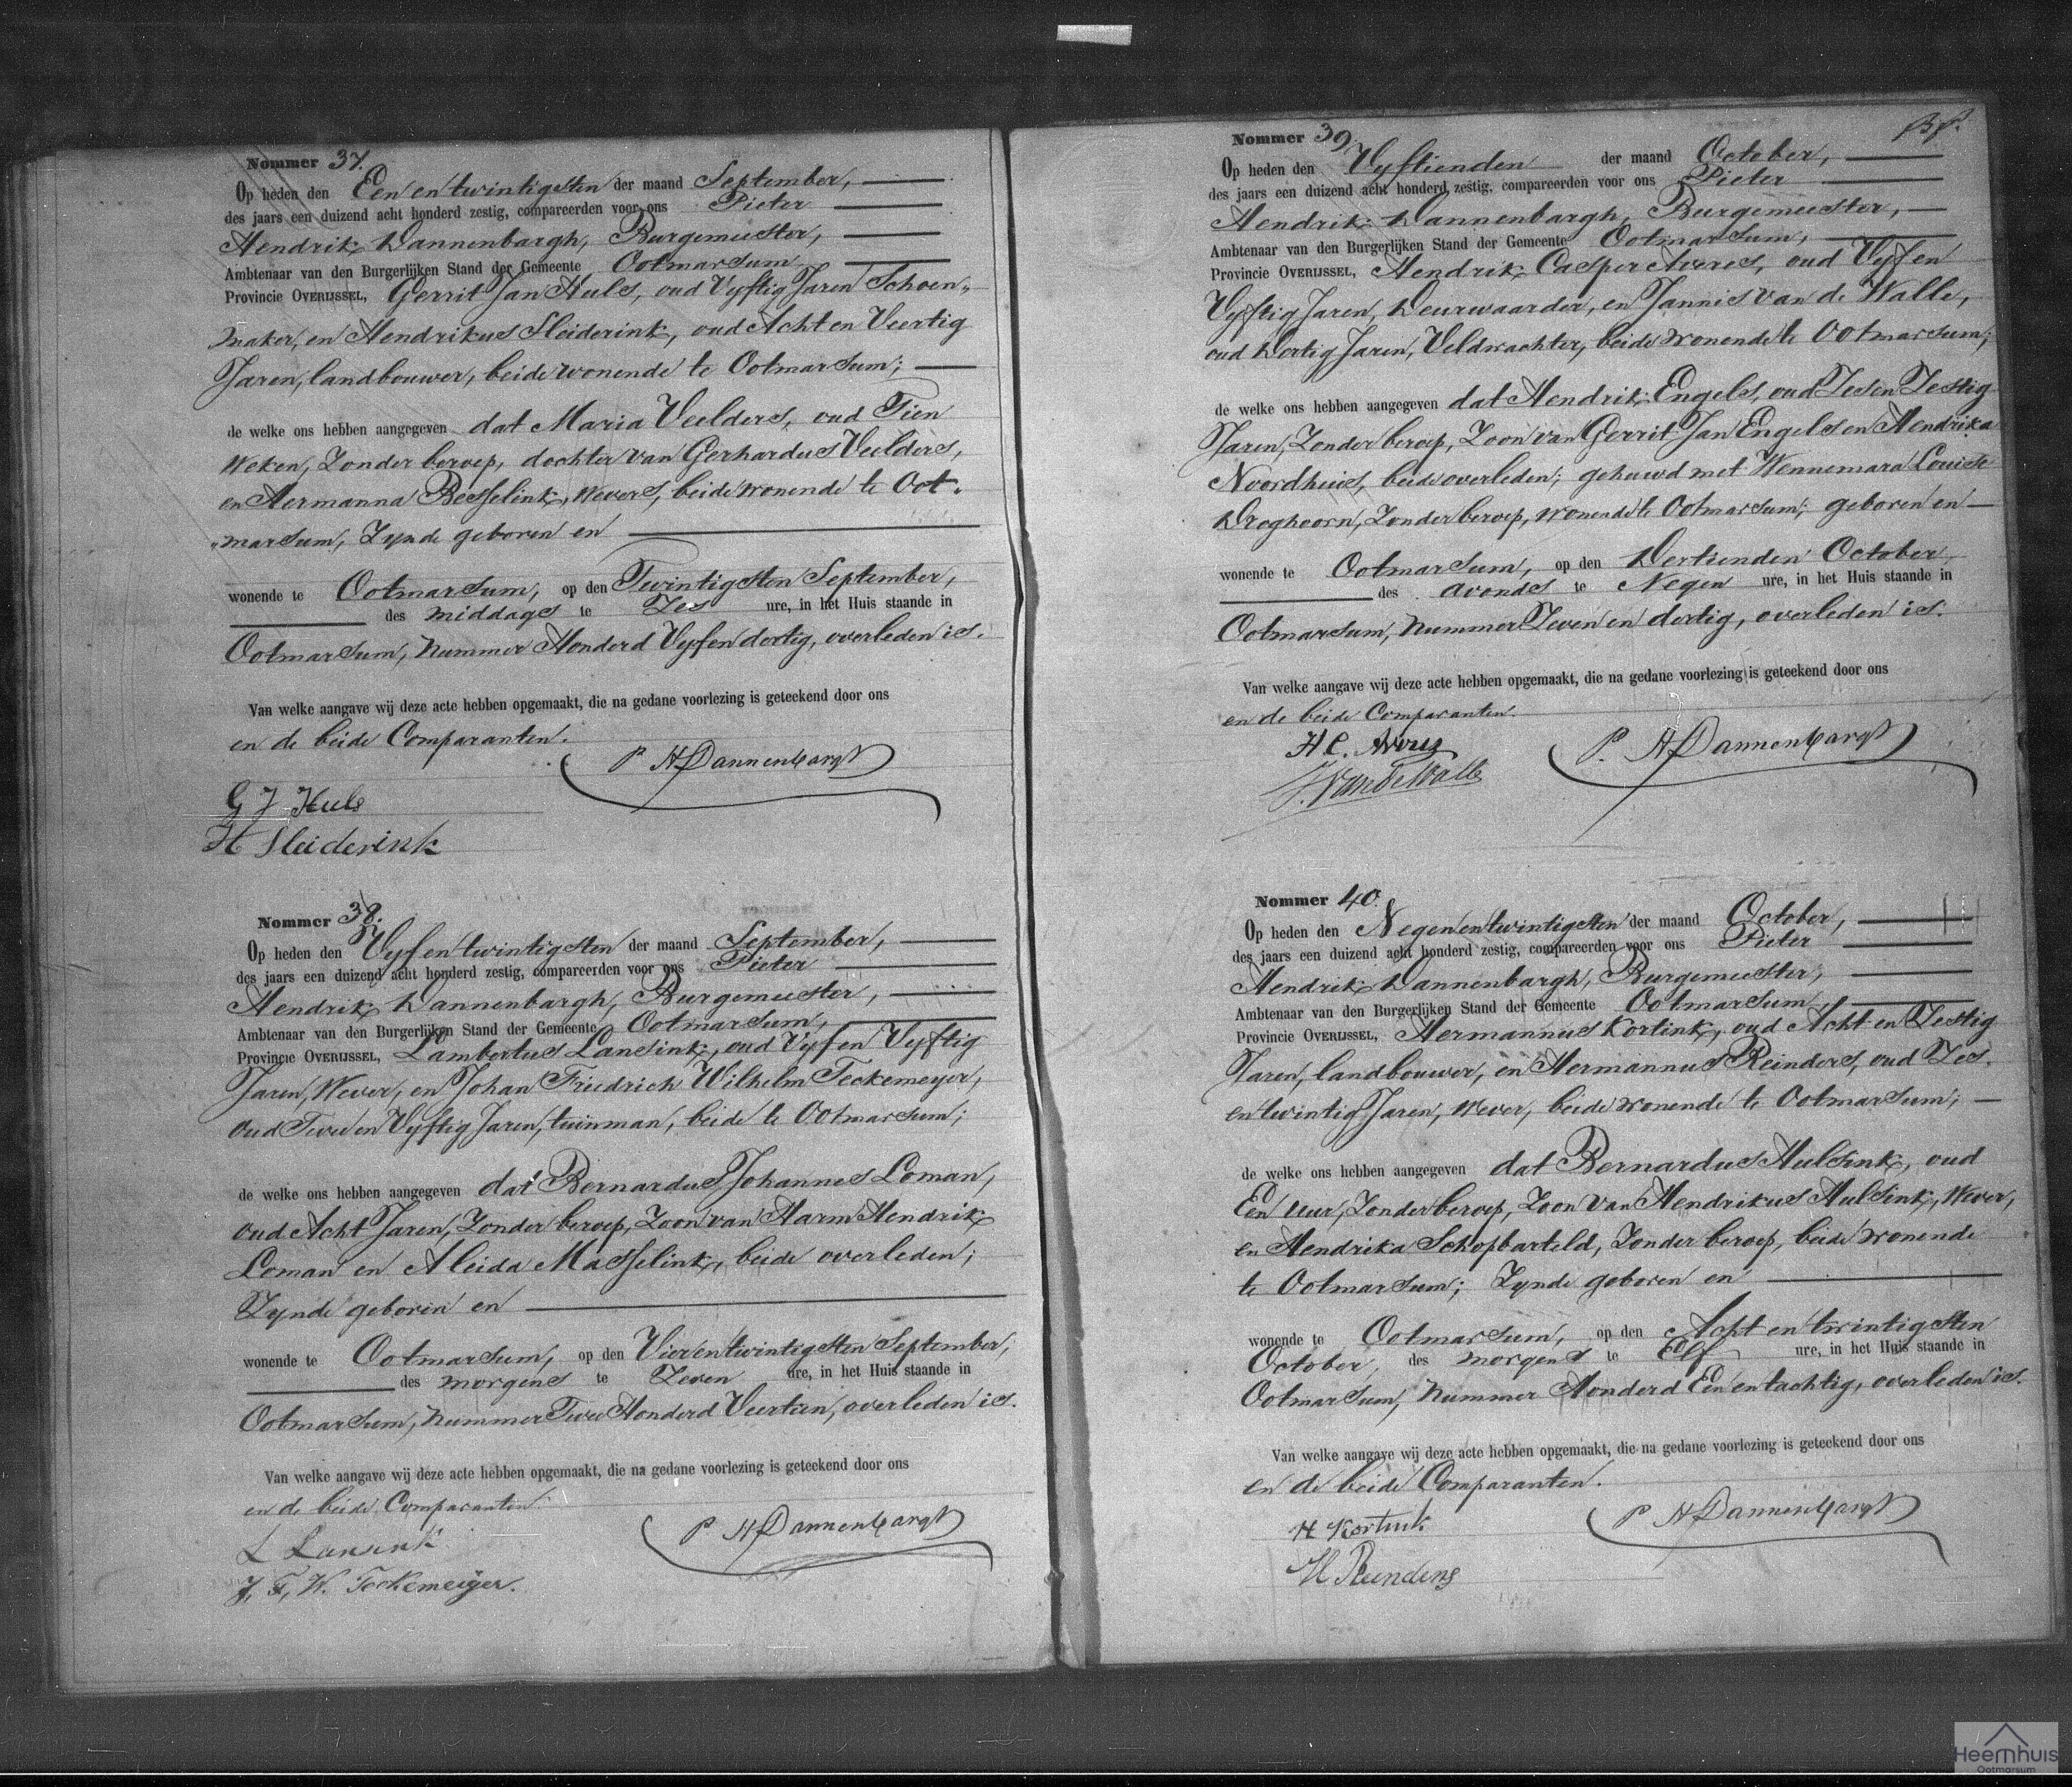 Nommer 37.
Op heden den Een en twintigsten der maand September,
des jaars een duizend acht honderd zestig, compareerden voor ons Pieter
Hendrik Dannenbargh, Burgemeester,
Ambtenaar van den Burgerlijken Stand der Gemeente Ootmarsum
Provincie OVERIJSSEL, Gerrit Jan Huls, oud Vyftig Jaren Schoen„
maker, en Hendrikus Sleiderink, oud Acht en Veertig
Jaren, landbouwer, beide wonende te Ootmarsum;
de welke ons hebben aangegeven dat Maria Veelders, oud Tien
Weken, Zonder beroep, dochter van Gerhardus Veelders,
en Hermanna Besselink, Wevers, beide wonende te Oot„
„marsum, Zynde geboren en
wonende te Ootmarsum, op den Twintigsten September,
des middags te Zes ure, in het Huis staande in
Ootmarsum, Nummer Honderd Vyf en dertig, overleden is.
Van welke aangave wij deze acte hebben opgemaakt, die na gedane voorlezing is geteekend door ons
en de beide Comparanten.
P H Dannenbargh
G J Huls
H Sleiderink
Nommer 38.
Op heden den Vyf en twintigsten der maand September,
des jaars een duizend acht honderd zestig, compareerden voor ons Pieter
Hendrik Dannenbargh, Burgemeester,
Ambtenaar van den Burgerlijken Stand der Gemeente Ootmarsum,
Provincie OVERIJSSEL, Lambertus Lansink, oud Vyf en Vyftig
Jaren, Wever, en Johan Friedrich Wilhelm Teckemeyer,
oud Twee en Vyftig Jaren, tuinman, beide te Ootmarsum;
de welke ons hebben aangegeven dat Bernardus Johannes Loman,
oud Acht Jaren, Zonder beroep, Zoon van Harm Hendrik
Loman en Aleida Masselink, beide overleden;
Zynde geboren en
wonende te Ootmarsum, op den Vier en twintigsten September,
des morgens te Zeven ure, in het Huis staande in
Ootmarsum, Nummer Twee Honderd Veertien, overleden is.
Van welke aangave wij deze acte hebben opgemaakt, die na gedane voorlezing is geteekend door ons
en de beide Comparanten.
P H Dannenbargh
L Lansink
J. F. W. Teckemeijer.
Nommer 39.
Op heden den Vyftienden der maand October,
des jaars een duizend acht honderd zestig, compareerden voor ons Pieter
Hendrik Dannenbargh, Burgemeester,
Ambtenaar van den Burgerlijken Stand der Gemeente Ootmarsum,
Provincie OVERIJSSEL, Hendrik Casper Averes, oud Vyf en
Vyftig Jaren, Deurwaarder, en Jannis van de Walle,
oud Dertig Jaren, Veldwachter, beide wonende te Ootmarsum;
de welke ons hebben aangegeven dat Hendrik Engels, oud Zes en Zestig
Jaren, Zonder beroep, Zoon van Gerrit Jan Engels en Hendrika
Noordhuis, beide overleden; gehuwd met Wennemara Louise
Dreghoorn, Zonder beroep, wonende te Ootmarsum; geboren en
wonende te Ootmarsum, op den Dertienden October
des avonds te Negen ure, in het Huis staande in
Ootmarsum, Nummer Zeven en dertig, overleden is.
Van welke aangave wij deze acte hebben opgemaakt, die na gedane voorlezing is geteekend door ons
en de beide Comparanten.
H C. P. H Dannenbargh
J. van de Walle
Nommer 40.
Op heden den Negen en twintigsten der maand October,
des jaars een duizend acht honderd zestig, compareerden voor ons Pieter
Hendrik Dannenbargh, Burgemeester,
Ambtenaar van den Burgerlijken Stand der Gemeente Ootmarsum,
Provincie OVERIJSSEL, Hermannus Kortink, oud Acht en Zestig
Jaren, landbouwer, en Hermannus Reinders, oud Zes
en twintig Jaren, Wever, beide wonende te Ootmarsum;
de welke ons hebben aangegeven dat Bernardus Hulsink, oud
Een uur, Zonder beroep, Zoon van Hendrikus Hulsink, Wever,
en Hendrika Schopbarteld, Zonder beroep, beide wonende
te Ootmarsum; Zynde geboren en
wonende te Ootmarsum, op den Acht en twintigsten
October, des morgens te Elf ure, in het Huis staande in
Ootmarsum, Nummer Honderd Een en tachtig, overleden is.
Van welke aangave wij deze acte hebben opgemaakt, die na gedane voorlezing is geteekend door ons
en de beide Comparanten.
H Kortink P H Dannenbargh
H Reinders
Heemhuis
Ootmarsum